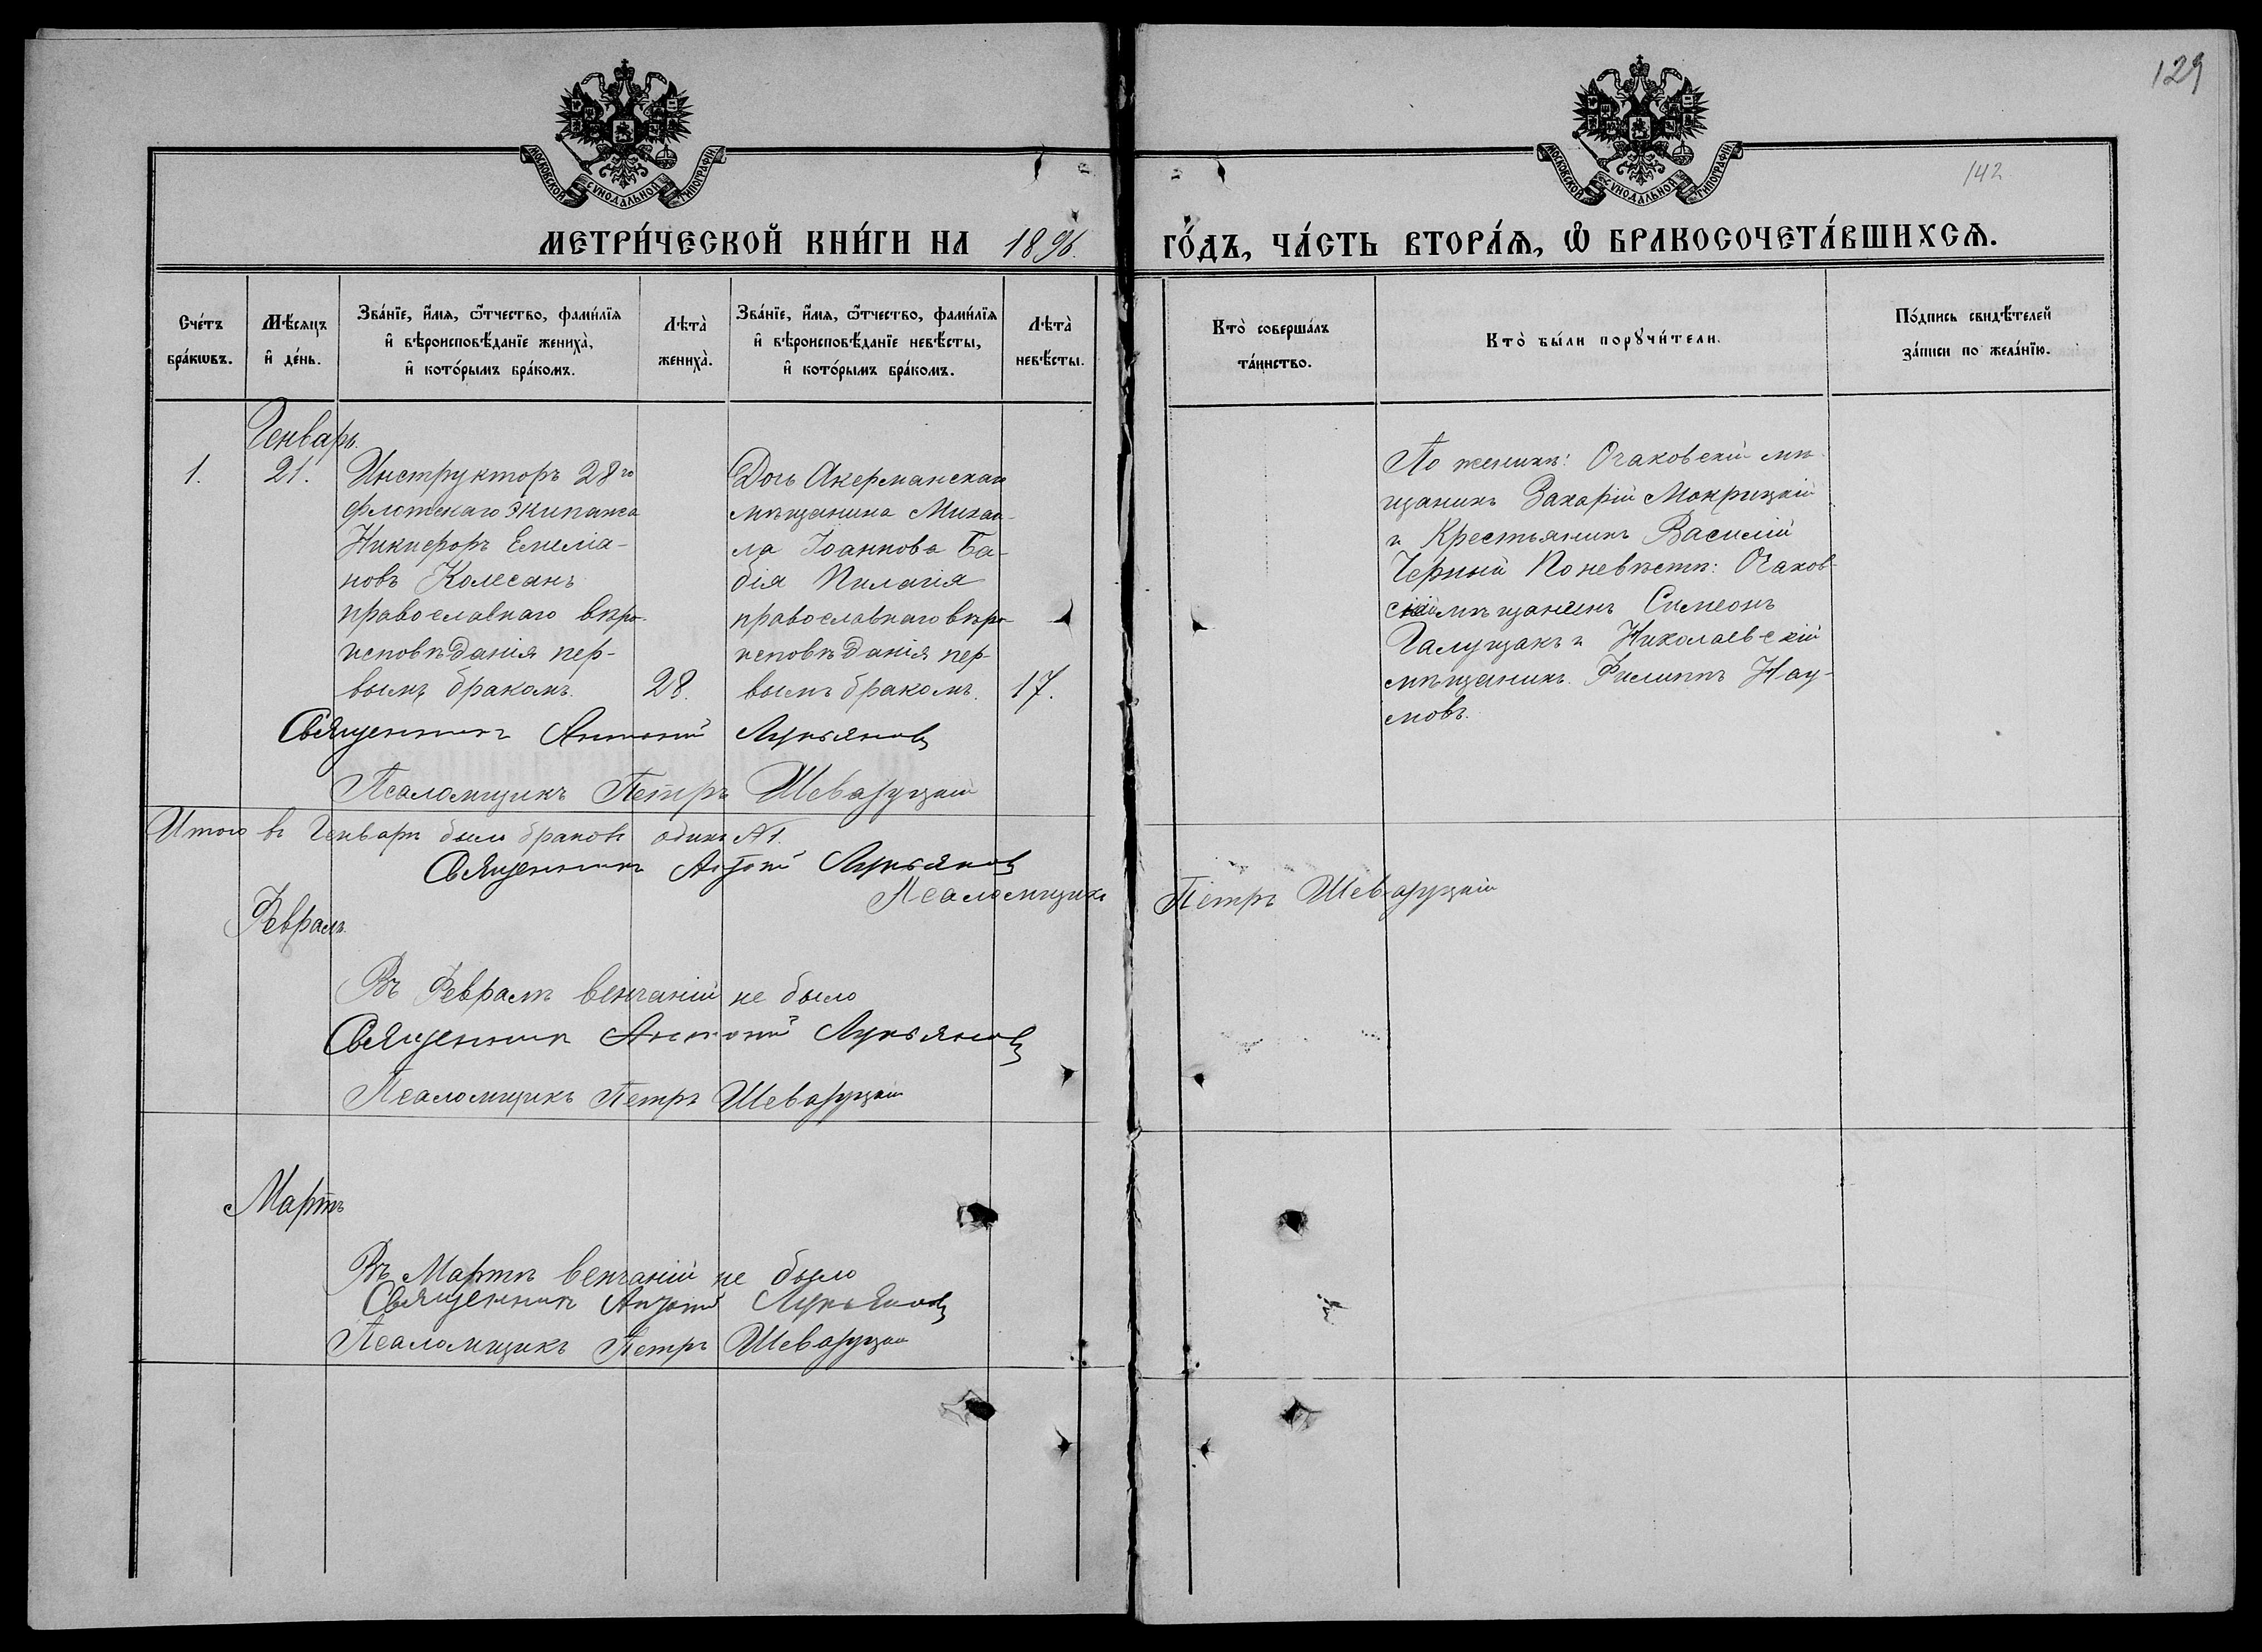 129
142
МОСКОВСКОЙ СУНОДАЛЬНОЙ ТИПОГРАФІИ
МОСКОВСКОЙ СУНОДАЛЬНОЙ ТИПОГРАФІИ
МЕТРИ́ЧЕСКОЙ КНИ́ГИ НА 1896.
ГО́ДЪ, ЧА́СТЬ ВТОРА́Ѧ, Ѡ҆ БРАКОСОЧЕТА́ВШИХСѦ.
Сче́тъ
бра́кѡвъ.
Мѣ́сяцъ
и҆ де́нь.
Зва́нїе, и҆́мѧ, ѻ҆́тчество, фами́лїѧ
и҆ вѣроисповѣ́данїе жениха̀,
и҆ кото́рымъ бра́комъ.
Лѣта̀
жениха̀.
Зва́нїе, и҆́мѧ, ѻ҆́тчество, фами́лїѧ
и҆ вѣроисповѣ́данїе невѣ́сты,
и҆ кото́рымъ бра́комъ.
Лѣта̀
невѣ́сты.
Кто̀ соверша́лъ
та́инство.
Кто̀ бы́ли порꙋчи́тели.
По́дпись свидѣ́телей
за́писи по жела́нїю.
Генварь.
1.
21.
Инструкторъ 28го
флотскаго экипажа
Никифоръ Емелiа-
новъ Колесанъ
православнаго вѣро-
исповѣданiя пер-
вымъ бракомъ.
28.
Дочь Акерманскаго
мѣщанина Михаи-
ла Iоаннова Ба-
бiя Пилагiя
православнаго вѣро-
исповѣданiя пер-
вымъ бракомъ.
17.
По женихѣ: Очаковскiй мѣ-
щанинъ Захарiй Мокрицкiй
и Крестьянинъ Василiй
Черный По невѣстѣ: Очаков-
скiй мѣщанинъ Симеонъ
Галущакъ и Николаевскiй
мѣщанинъ Филиппъ Нау-
мовъ.
Священникъ Антонiй Лукьяновъ
Псаломщикъ Петръ Шеваруцкiй
Итого въ Генварѣ было браковъ одинъ №1.
Священникъ Антонiй Лукьяновъ
Псаломщикъ Петръ Шеваруцкiй
Февраль.
Въ Февралѣ венчанiй не было
Священникъ Антонiй Лукьяновъ
Псаломщикъ Петръ Шеваруцкiй
Мартъ
Въ Мартѣ венчанiй не было
Священникъ Антонiй Лукьяновъ
Псаломщикъ Петръ Шеваруцкiй